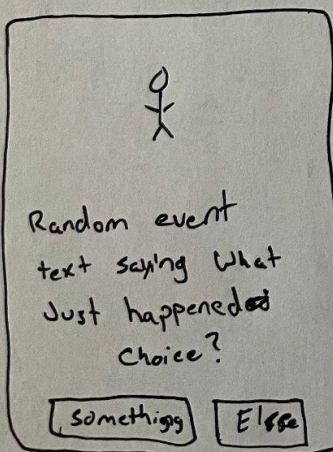 Random event
text saying what
Just happened
Choice?
Something
Else